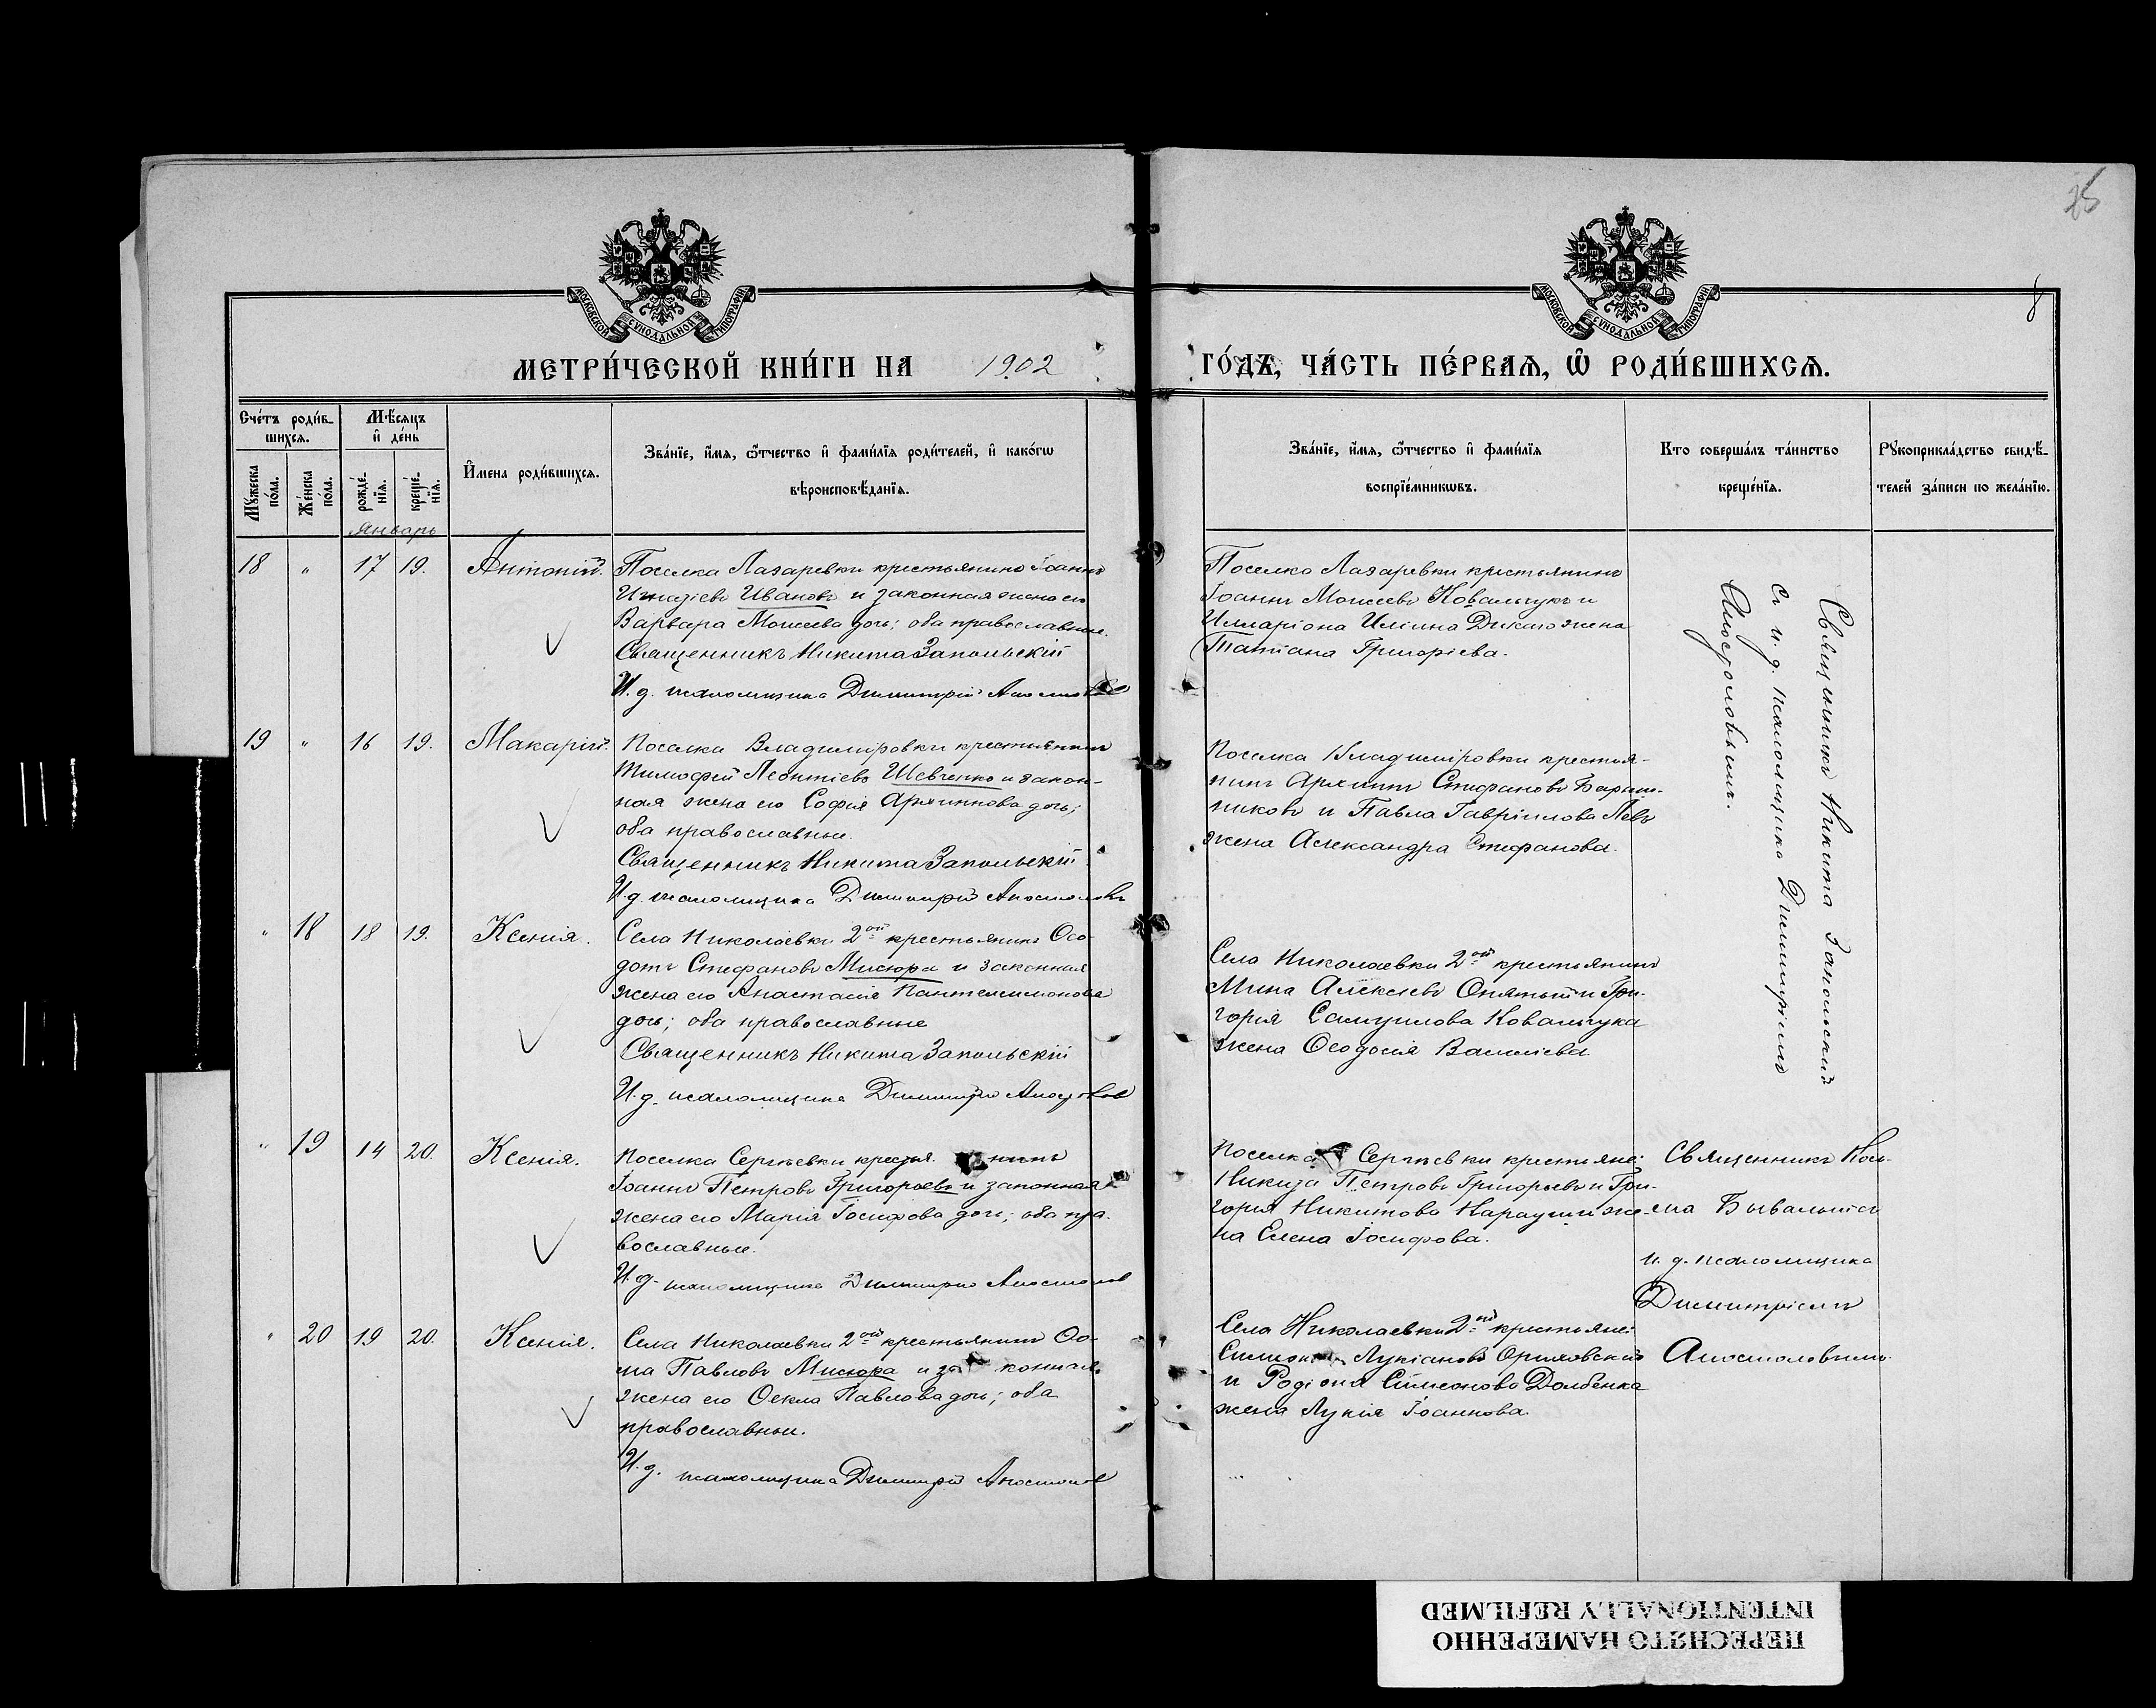 25
8
МОСКОВСКОЙ СѴНОДАЛЬНОЙ ТИПОГРАФІИ
МОСКОВСКОЙ СѴНОДАЛЬНОЙ ТИПОГРАФІИ
МЕТРИ́ЧЕСКОЙ КНИ́ГИ НА 1902
ГО́ДЪ, ЧА́СТЬ ПЕ́РВАѦ, Ѿ РОДИ́ВШИХСѦ.
Сче́тъ роди́в-
шихсѧ.
Мꙋжеска по́ла.
Же́нска по́ла.
Мѣ́сѧцъ и҆ де́нь
рожде́-нїѧ.
креще́-нїѧ.
И҆мена роди́вшихсѧ.
Зва́нїе, и҆́мѧ, ѻ҆́тчество и҆ фами́лїѧ роди́телей, и҆ како́гѡ
вѣроисповѣ́данїѧ.
Зва́нїе, и҆́мѧ, ѻ҆́тчество и҆ фами́лїѧ
воспрїе́мникѡвъ.
Кто соверша́лъ та́инство
креще́нїѧ.
Рꙋкоприкла́дство свидѣ́-
телей за́писи по жела́нїю.
Январь
18 " 17 19. Антоній.
Поселка Лазаревки крестьянинъ Іоаннъ
Игнатіевъ Ивановъ и законная жена его
Варвара Моисеева дочь; оба православные.
Священникъ Никита Запольскій
И. д. псаломщика Димитрій Апостоловъ
Поселка Лазаревки крестьянинъ
Іоаннъ Моисеевъ Ковальчукъ и
Илларіона Иліина Дикаго жена
Татіана Григоріева.
Священникъ Никита Запольскій
съ и. д. псаломщика Димитріемъ
Апостоловымъ.
19 " 16 19. Макарій.
Поселка Владимировки крестьянинъ
Тимофей Леонтіевъ Шевченко и закон-
ная жена его Софія Архиппова дочь;
оба православные.
Священникъ Никита Запольскій
И. д. псаломщика Димитрій Апостоловъ
Поселка Владиміровки крестья-
нинъ Архиппъ Стефановъ
и Павла Гавріилова
жена Александра Стефанова.
" 18 18 19. Ксенія.
Села Николаевки 2ой крестьянинъ Ѳео-
дотъ Стефановъ Мисюра и законная
жена его Анастасія Пантелеимонова
дочь; оба православные
Священникъ Никита Запольскій
И. д. псаломщика Димитрій Апостоловъ
Села Николаевки 2ой крестьянинъ
Мина Алексіевъ и Гри-
горія Самуилова Ковальчука
жена Ѳеодосія Василіева.
" 19 14 20. Ксенія.
Поселка Сергѣевки крестья нинъ
Іоаннъ Петровъ Григорьевъ и законная
жена его Марія Іосифова дочь; оба пра-
вославные.
И. д. псаломщика Димитрій Апостоловъ
Поселка Сергѣевки крестьяне:
Никита Петровъ Григорьевъ и Гри-
горія Никитова же-
на Елена Іосифова.
Священникъ Кось-
ма
и. д. псаломщика
Димитріемъ
Апостоловымъ.
" 20 19 20. Ксенія.
Села Николаевки 2ой крестьянинъ Ѳо-
ма Павловъ Мисюра и за конная
жена его Ѳекла Павлова дочь; оба
православные.
И. д. псаломщика Димитрій Апостоловъ
Села Николаевки 2ой крестьяне:
Симеонъ Лукіановъ
и Родіона Симеонова Долбенка
жена Лукія Іоаннова.
ПЕРЕСНЯТО НАМЕРЕННО
INTENTIONALLY REFILMED